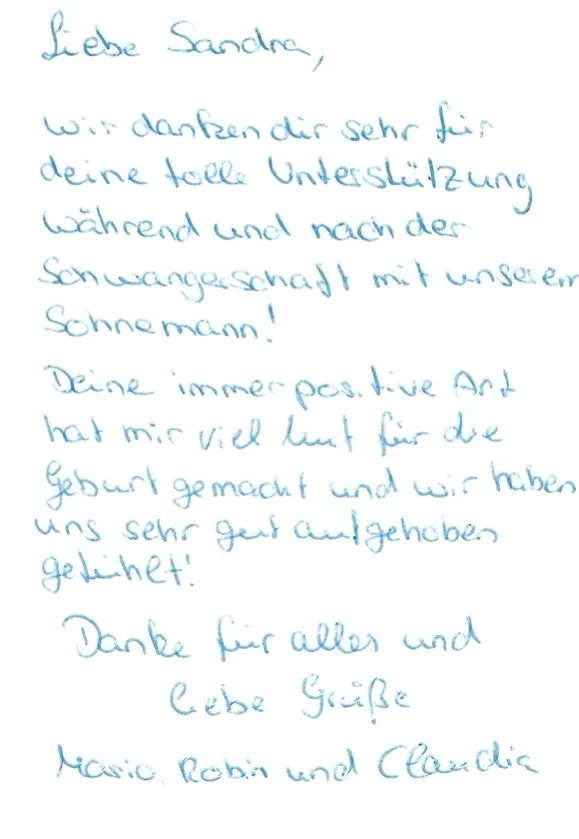 Liebe Sandra,
wir danken dir sehr für
deine tolle Unterstützung
während und nach der
Schwangerschaft mit unserem
Sohnemann!
Deine immer positive Art
hat mir viel Mut für die
Geburt gemacht und wir haben
uns sehr gut aufgehoben
gefühlt!
Danke für alles und
liebe Grüße
Mario, Robin und Claudia